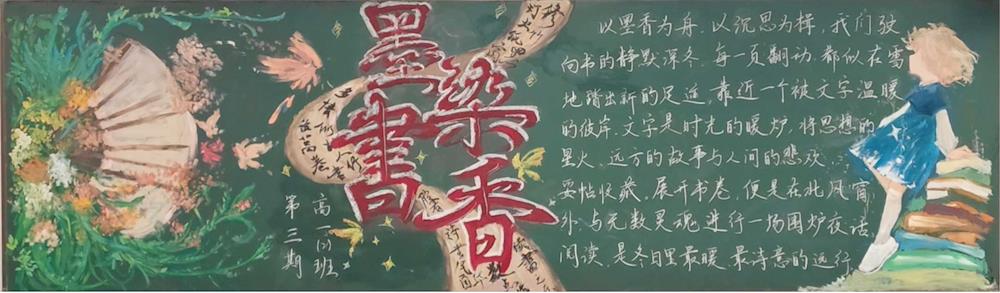 墨染
書香
高一(2)班
第三期
以墨香为舟，以沉思为楫，我们驶
向书的静默深冬。每一页翻动，都似在雪
地踏出新的足迹，靠近一个被文字温暖
的彼岸。文字是时光的暖炉，将思想的
星火、远方的故事与人间的悲欢，
妥帖收藏。展开书卷，便是在北风窗
外，与无数灵魂进行一场围炉夜话。
阅读，是冬日里最暖、最诗意的远行。